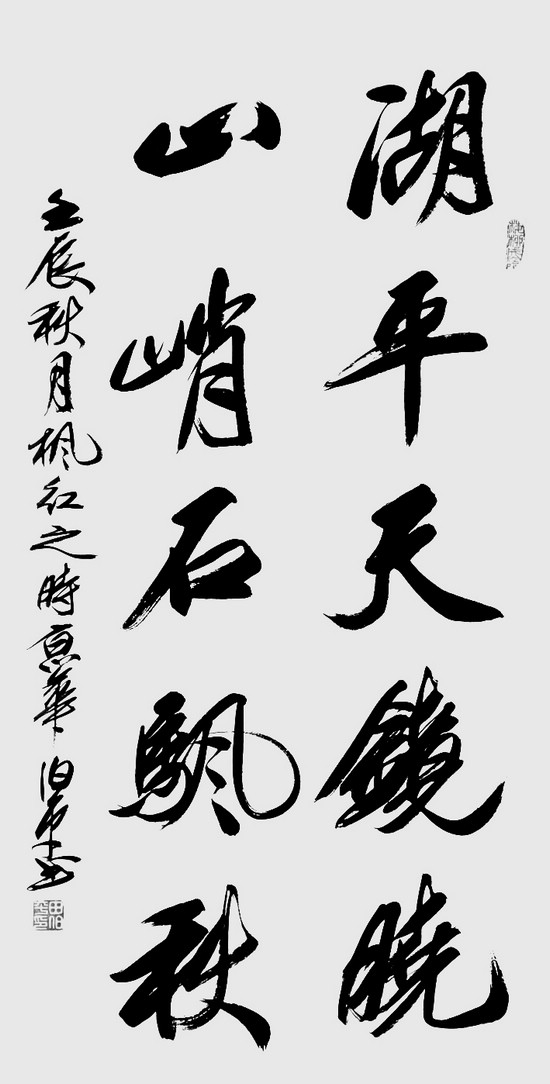 湖平天鏡曉
山峭石颿秋
壬辰秋月楓紅之時京華伯平書